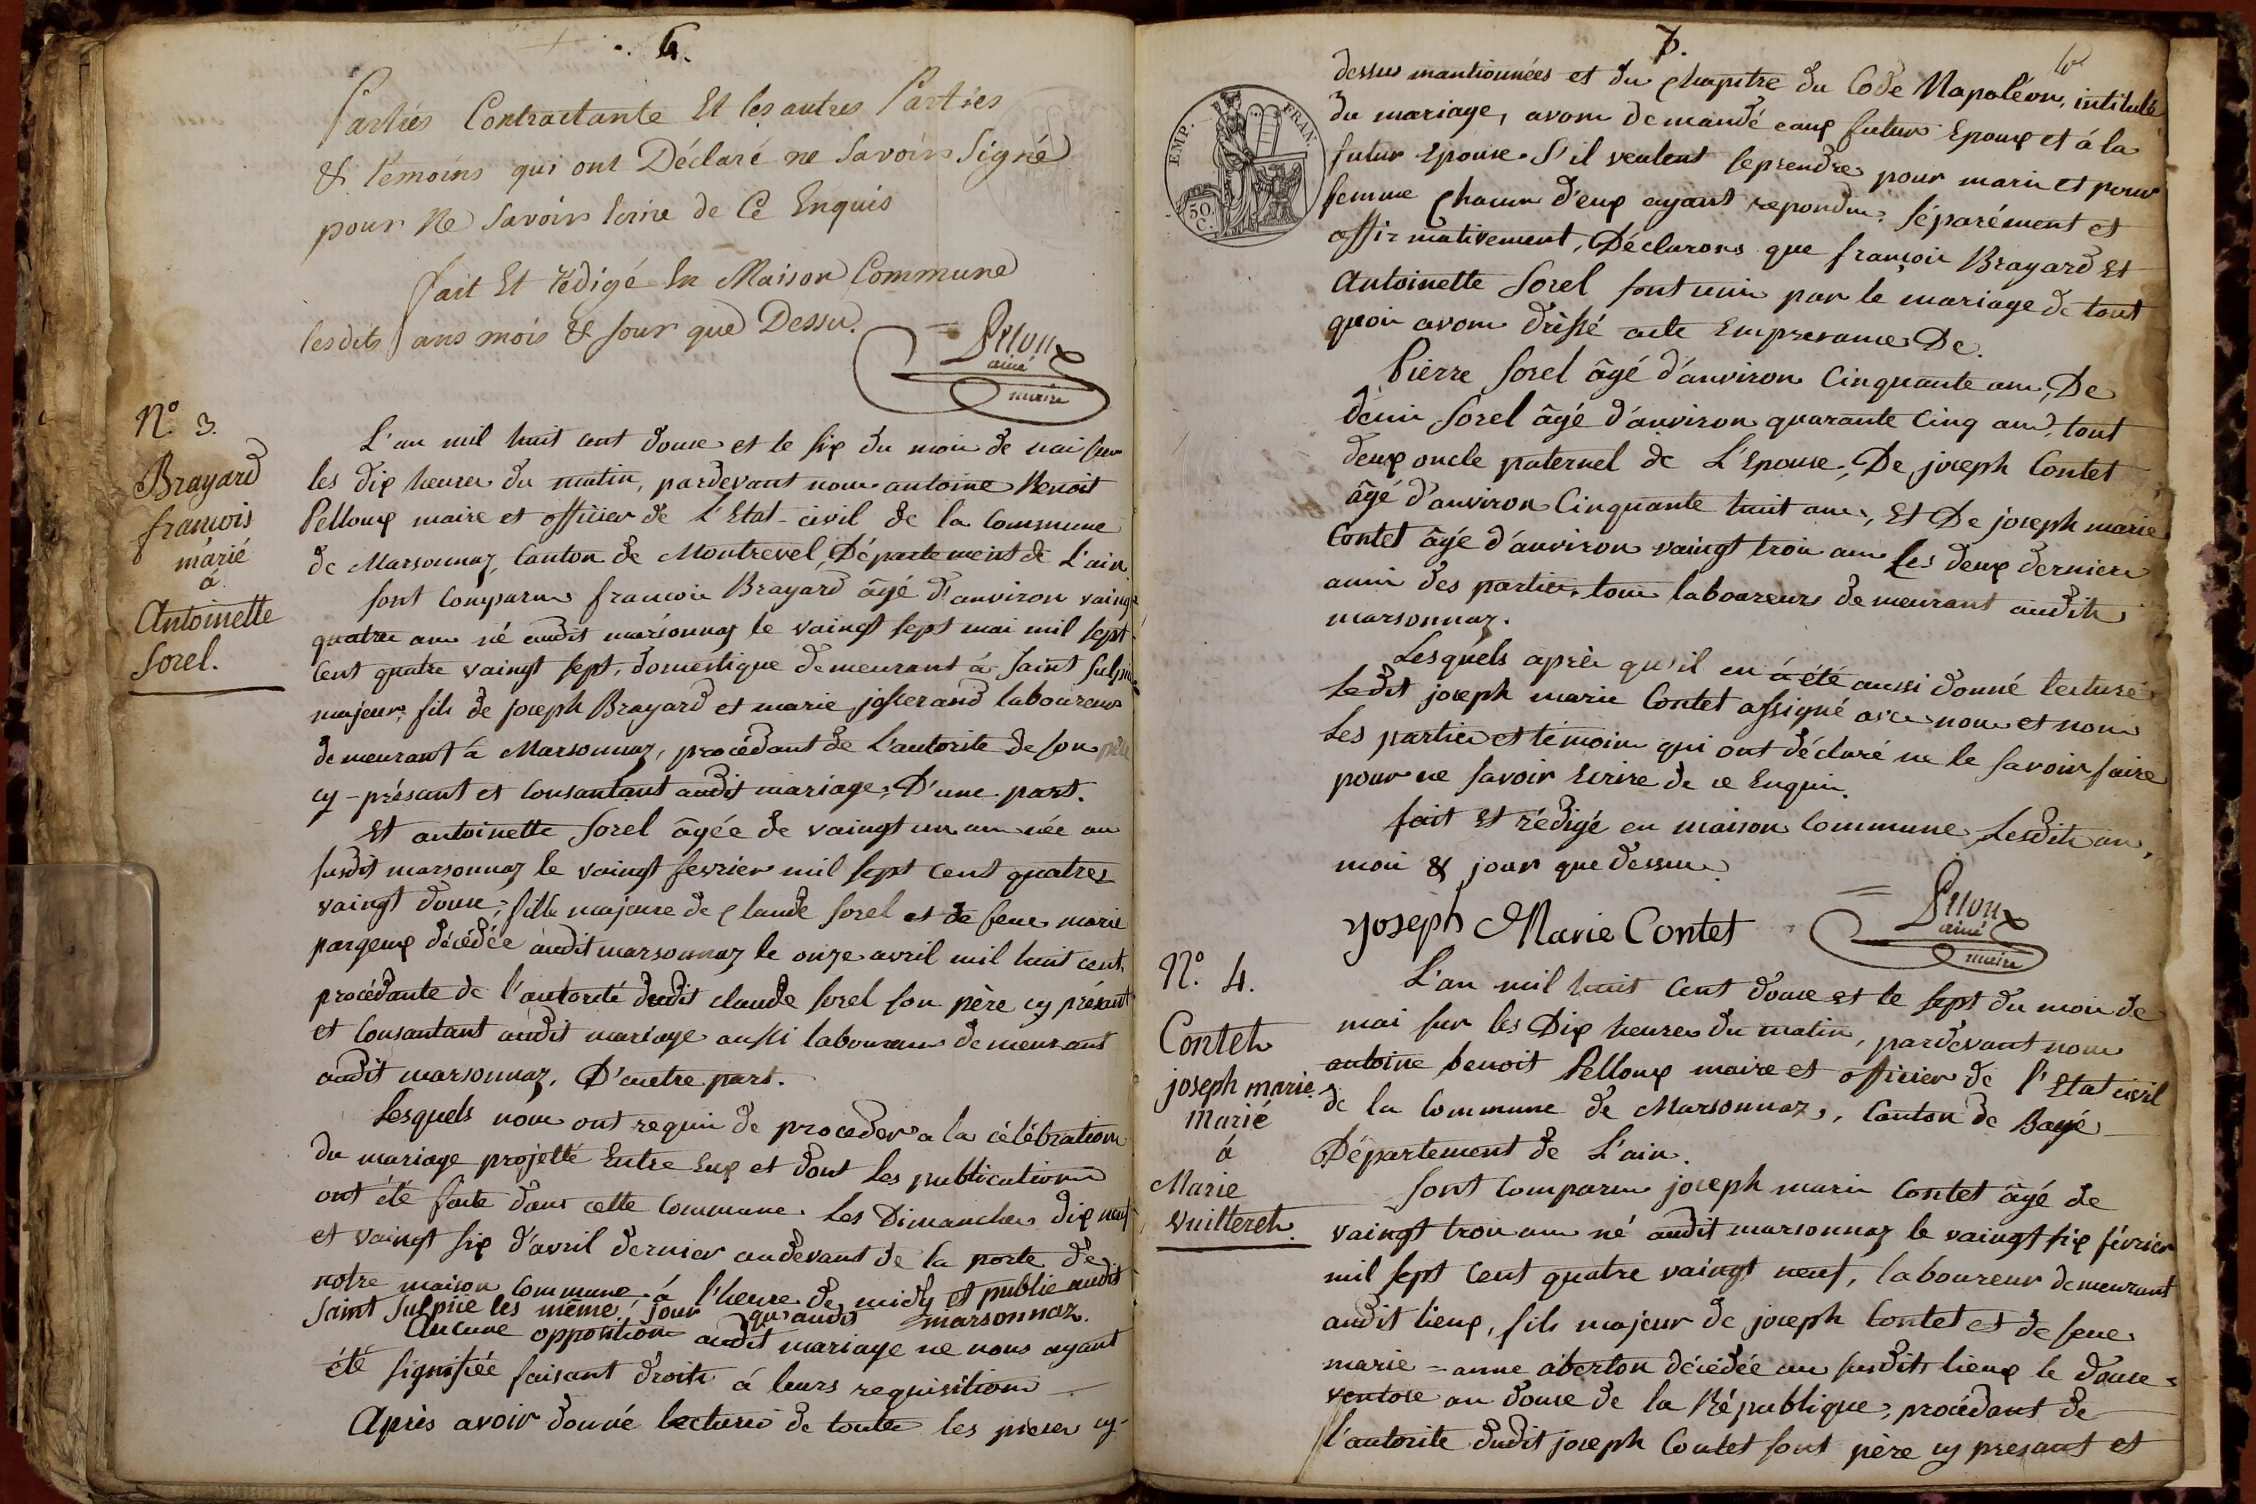 6.
Parties Contractante Et les autres Parties
& témoins qui ont Déclaré ne Savoir Signé
pour Ne Savoir Ecrire de Ce Enquis
fait Et rédigé En Maison Commune
lesdits ans mois & Jour que Dessu.
ainé
maire
N.º 3.
Brayard
francois
márié
a
Antoinette
Sorel.
L'an mil huit cent douse et le six du moi de mai sur
les dix heures du matin, pardevant nous antoine Benoit
Pelloux maire et officier de L'Etat-civil de la Commune
de Marsonnaz, Canton de Montrevel, Département de L'ain
Sont Comparus francois Brayard âgé d'anviron vaingt
quatre ans né audit marsonnaz le vaingt sept mai mil sept
Cent quatre vaingt sept, domestique demeurant à Saint Sulpice
majeur, fils de joseph Brayard et marie josserand laboureurs
demeurant à Marsonnaz, procédant de L'autorite de son père
cy-présant et Consantant audit mariage, D'une part.
Et antoinette Sorel âgée de vaingt un an née au
susdit marsonnaz le vaingt fevrier mil sept cent quatre
vaingt douse, fille majeure de Claude Sorel et de feue marie
pargeux décédée audit marsonnaz le onze avril mil huit cent
procédante de l'autorité dudit claude Sorel son père cy présant
et Consantant audit mariage aussi laboureur demeurant
audit marsonnaz, D'autre part.
Lesquels nous ont requis de proceder a la célébration
du mariage projetté Entre Eux et dont les publications
ont été faite dans cette Commune Les Dimanches dix neuf
et vaingt six d'avril dernier audevant de la porte de
notre maison Commune à l'heure de midy et publie audit
Saint Sulpice les même jour qu'audit marsonnaz.
Aucune opposition audit mariage ne nous ayant
été signifiée faisant droite á leurs requisition
Après avoir donné lecture de toute les pieses cy-
7.
EMP. FRAN.
50 C.
dessus mantionnées et du Chapitre du Code Napoléon, intitulé
du mariage, avons demandé eaux futur Epoux et à la
futur Epouse S'il veulent se prendre pour marie et pour
femme Chacun d'eux ayant repondu séparément et
affirmativement, Déclarons que françois Brayard Et
Antoinette Sorel sont unis par le mariage de tout
quoi avons dréssé acte Enpresance De.
Pierre Sorel âgé d'anviron Cinquante ans, De
dénis Sorel âgé d'anviron quarante Cinq ans, tout
deux oncle paternel de L'Epouse, De joseph Contet
âgé d'anviron Cinquante huit ans, Et De joseph marie
Contet âgé d'anviron vaingt trois ans Les deux derniers
amis des parties, tous laboureurs demeurant audit
marsonnaz.
Lesquels après qu'il en á été aussi donné lecture
Ledit joseph marie Contet assigné avec nous et non
Les parties et témoins qui ont déclaré ne le savoir faire
pour ne savoir Ecrire de ce Enquis.
fait Et rédigé en maison Commune, Lesdits an,
moi & jour que dessus
Joseph Marie Contet
ainé
maire
N.º 4.
Contet
joseph marie
Marié
á
Marie
Vuilleret.
L'an mil huit Cent douse et le sept du moi de
mai sur les Dix heures du matin, pardevant nous
antoine benoit Pelloux maire et officier de l'Etat civil
de la Commune de Marsonnaz, Canton de Bagé
Département de L'ain.
Sont Comparus joseph marie Contet âgé de
vaingt trois ans né audit marsonnaz le vaingt six février
mil sept Cent quatre vaingt neuf, laboureur demeurant
audit lieux, fils majeur de joseph Contet et de feue
marie-anne áberton décédée au susdit lieux le douse
ventose an douse de la République, procédant de
l'autorite dudit joseph Contet sont père cy presant et